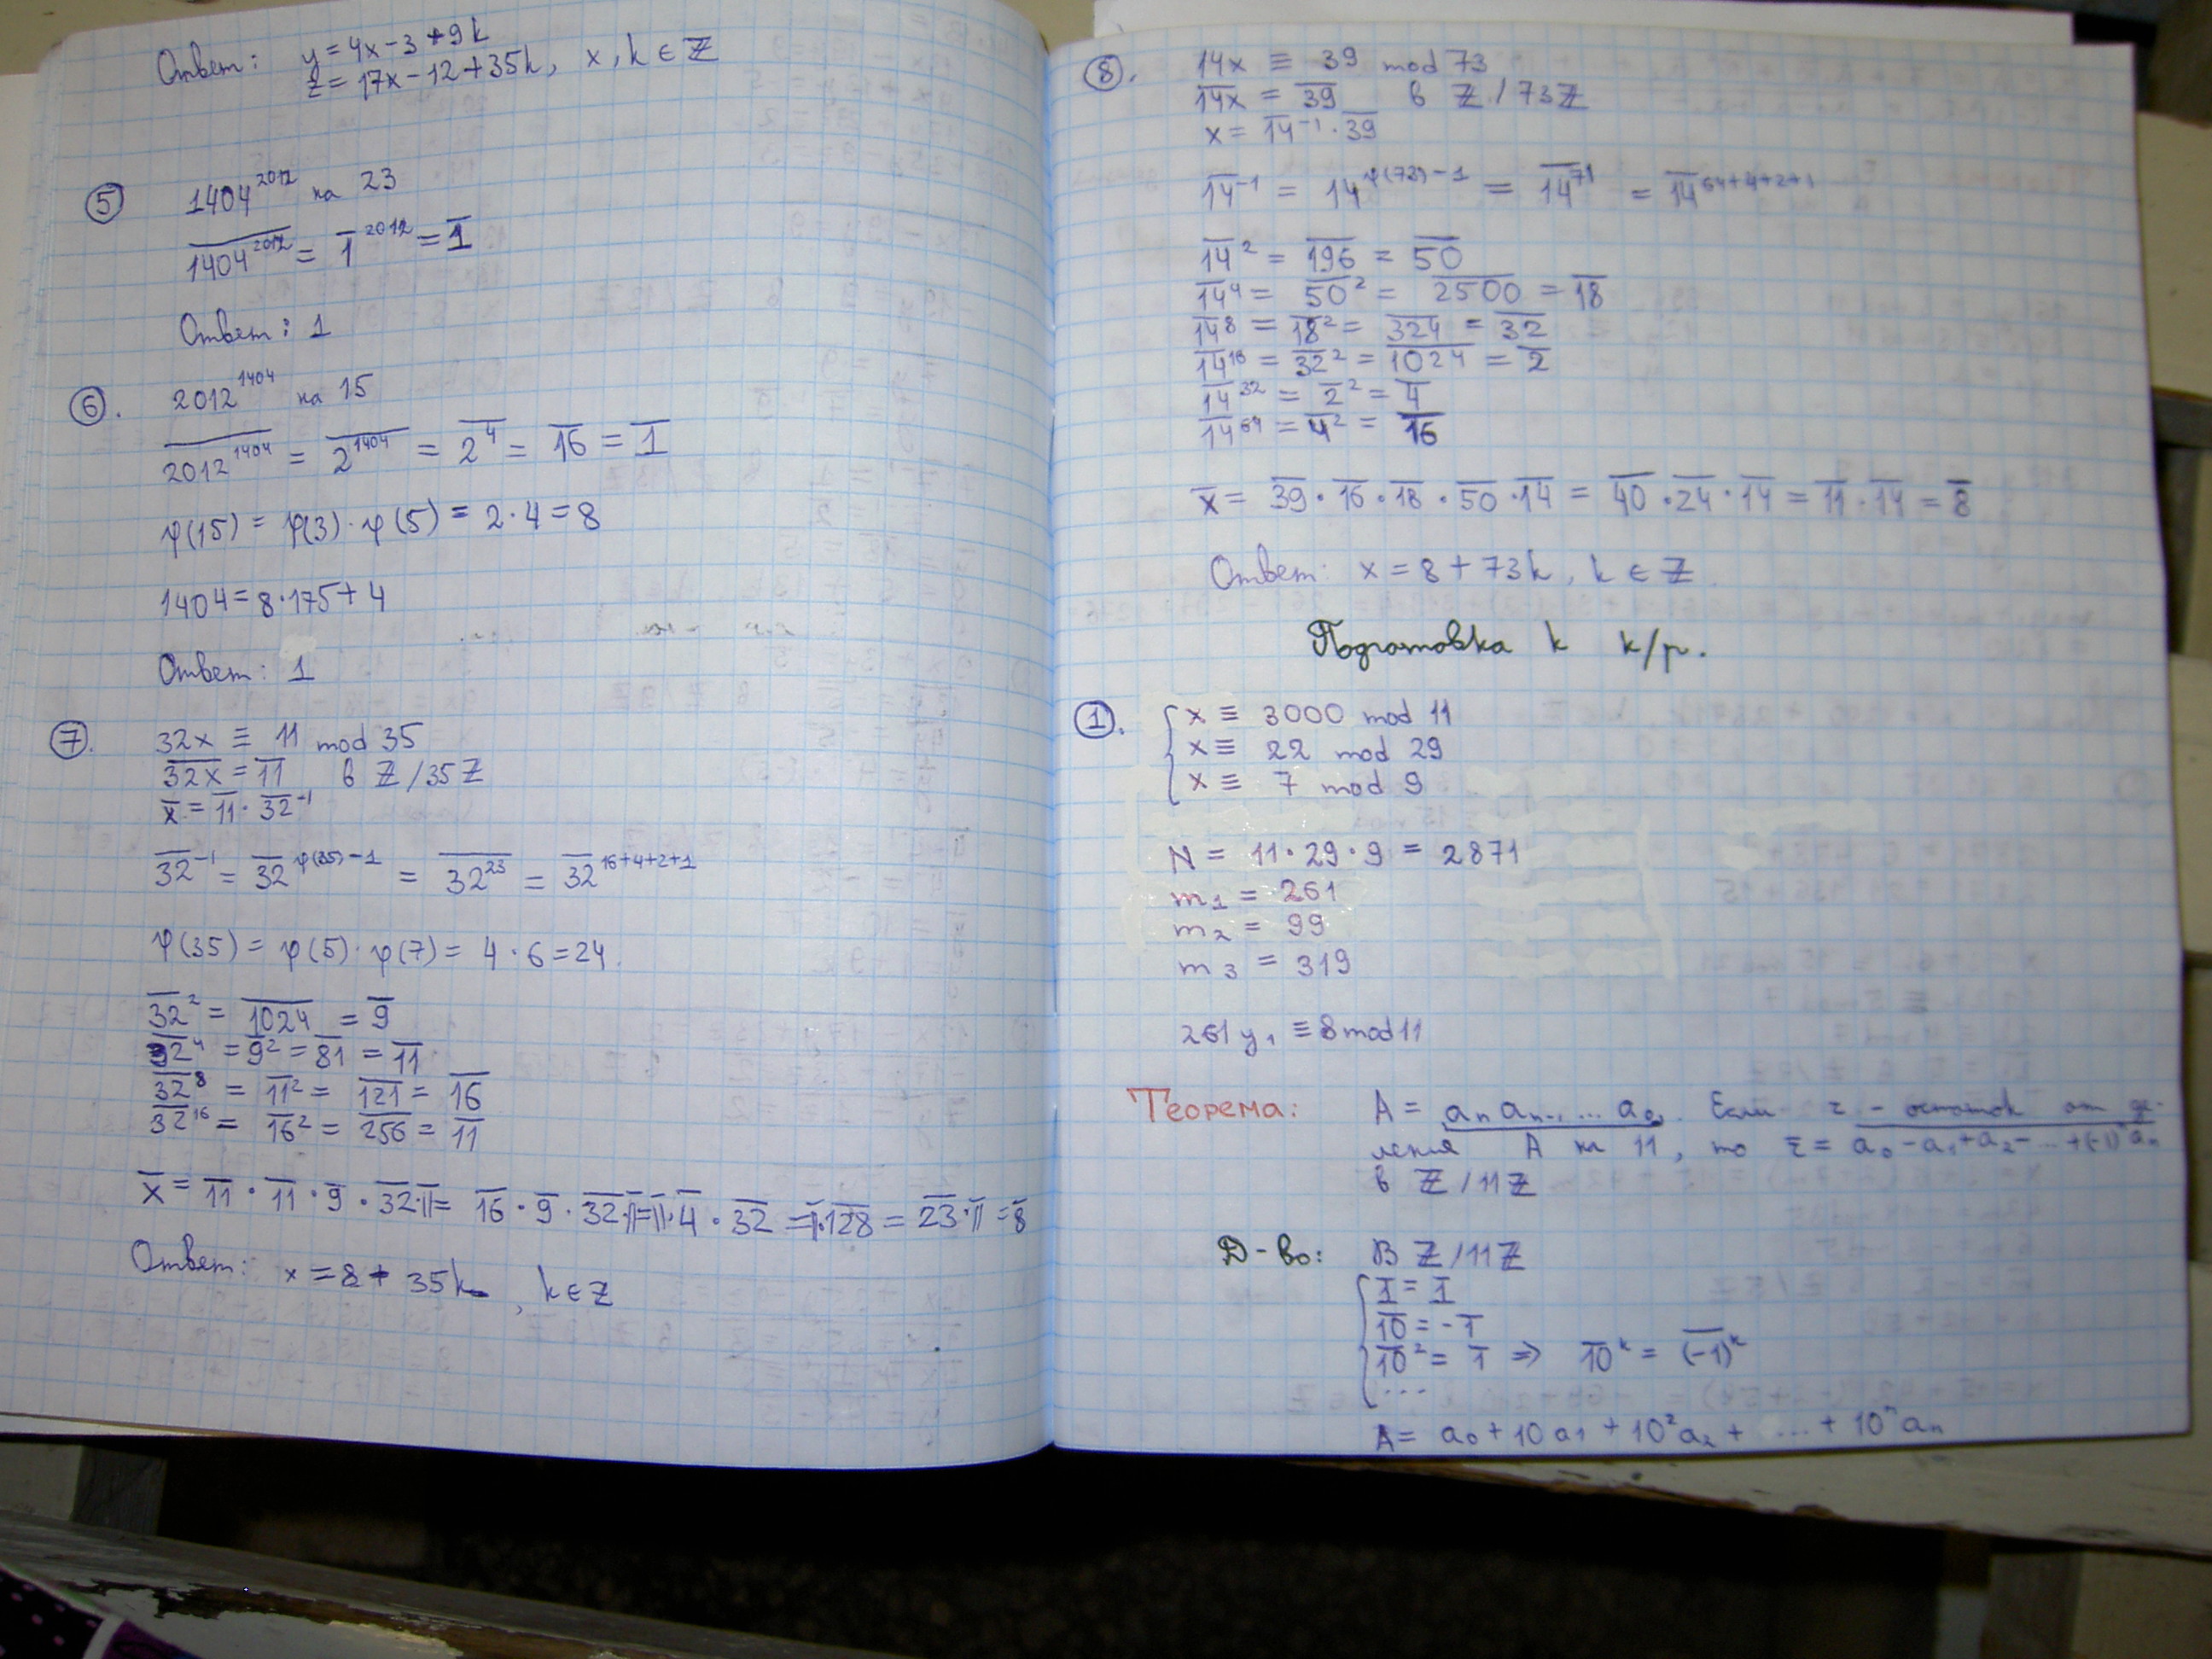 Ответ: y = 4x - 3 + 9k
z = 17x - 12 + 35k, x, k ∈ ℤ
⑤ 1404²⁰¹² на 23
\overline{1404²⁰¹²} = \overline{1}²⁰¹² = \overline{1}
Ответ: 1
⑥. 2012¹⁴⁰⁴ на 15
\overline{2012¹⁴⁰⁴} = \overline{2¹⁴⁰⁴} = \overline{2⁴} = \overline{16} = \overline{1}
φ(15) = φ(3) · φ(5) = 2 · 4 = 8
1404 = 8 · 175 + 4
Ответ: 1
⑦. 32x ≡ 11 mod 35
\overline{32x} = \overline{11} в ℤ/35ℤ
\overline{x} = \overline{11} · \overline{32}⁻¹
\overline{32}⁻¹ = \overline{32}^{φ(35)-1} = \overline{32²³} = \overline{32}^{16+4+2+1}
φ(35) = φ(5) · φ(7) = 4 · 6 = 24.
\overline{32}² = \overline{1024} = \overline{9}
\overline{32}⁴ = \overline{9}² = \overline{81} = \overline{11}
\overline{32}⁸ = \overline{11}² = \overline{121} = \overline{16}
\overline{32}¹⁶ = \overline{16}² = \overline{256} = \overline{11}
\overline{x} = \overline{11} · \overline{11} · \overline{9} · \overline{32} · \overline{11} = \overline{16} · \overline{9} · \overline{32} · \overline{11} = \overline{11} · \overline{4} · \overline{32} = \overline{11} · \overline{128} = \overline{23} · \overline{11} = \overline{8}
Ответ: x = 8 + 35k, k ∈ ℤ
⑧. 14x ≡ 39 mod 73
\overline{14x} = \overline{39} в ℤ/73ℤ
x = \overline{14}⁻¹ · \overline{39}
\overline{14}⁻¹ = 14^{φ(73)-1} = \overline{14}⁷¹ = \overline{14}^{64+4+2+1}
\overline{14}² = \overline{196} = \overline{50}
\overline{14}⁴ = \overline{50}² = \overline{2500} = \overline{18}
\overline{14}⁸ = \overline{18}² = \overline{324} = \overline{32}
\overline{14}¹⁶ = \overline{32}² = \overline{1024} = \overline{2}
\overline{14}³² = \overline{2}² = \overline{4}
\overline{14}⁶⁴ = \overline{4}² = \overline{16}
\overline{x} = \overline{39} · \overline{16} · \overline{18} · \overline{50} · \overline{14} = \overline{40} · \overline{24} · \overline{14} = \overline{11} · \overline{14} = \overline{8}
Ответ: x = 8 + 73k, k ∈ ℤ
Подготовка к к/р.
①. { x ≡ 3000 mod 11
x ≡ 22 mod 29
x ≡ 7 mod 9
N = 11 · 29 · 9 = 2871
m₁ = 261
m₂ = 99
m₃ = 319
261 y₁ ≡ 8 mod 11
Теорема: A = \overline{aₙ aₙ₋₁ ... a₀}. Если r - остаток от де-
ления A на 11, то \overline{r} = \overline{a₀ - a₁ + a₂ - ... + (-1)ⁿ aₙ}
в ℤ/11ℤ
Д-во: В ℤ/11ℤ
{ \overline{1} = \overline{1}
\overline{10} = -\overline{1}
\overline{10}² = \overline{1} ⇒ \overline{10}ᵏ = \overline{(-1)}ᵏ
...
A = a₀ + 10a₁ + 10²a₂ + ... + 10ⁿaₙ